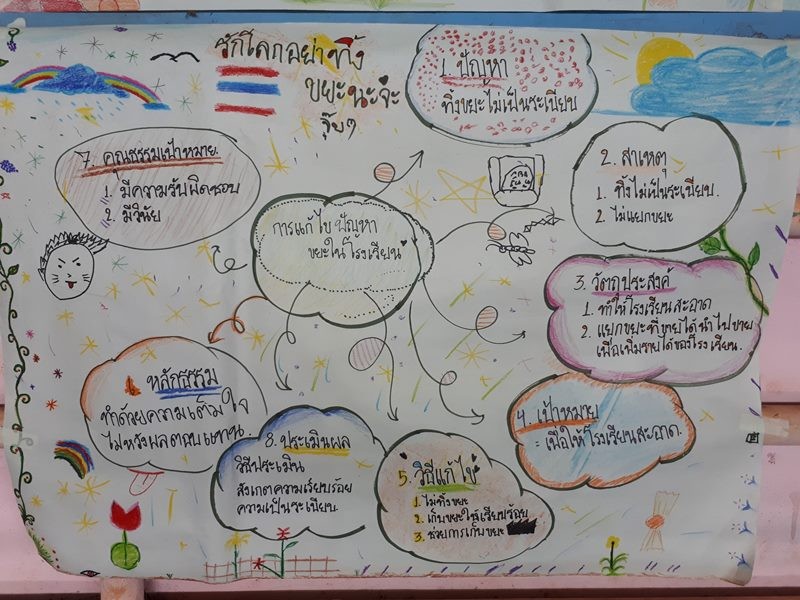 รักโลกอย่าทิ้ง
ขยะนะจ๊ะ
จุ๊บๆ
1. ปัญหา
ทิ้งขยะไม่เป็นระเบียบ
2. สาเหตุ
1. ทิ้งไม่เป็นระเบียบ.
2. ไม่แยกขยะ
3. วัตถุประสงค์
1. ทำให้โรงเรียนสะอาด
2. แยกขยะที่ขายได้นำไปขาย
เพื่อเพิ่มรายได้ของโรงเรียน.
4. เป้าหมาย
= เพื่อให้โรงเรียนสะอาด.
5. วิธีแก้ไข
1. ไม่ทิ้งขยะ
2. เก็บขยะให้เรียบร้อย
3. ช่วยการเก็บขยะ
8. ประเมินผล
วิธีประเมิน
สังเกตความเรียบร้อย
ความเป็นระเบียบ
หลักธรรม
ทำด้วยความเต็มใจ
ไม่หวังผลตอบแทน.
7. คุณธรรมเป้าหมาย.
1. มีความรับผิดชอบ
2. มีวินัย
การแก้ไขปัญหา
ขยะในโรงเรียน